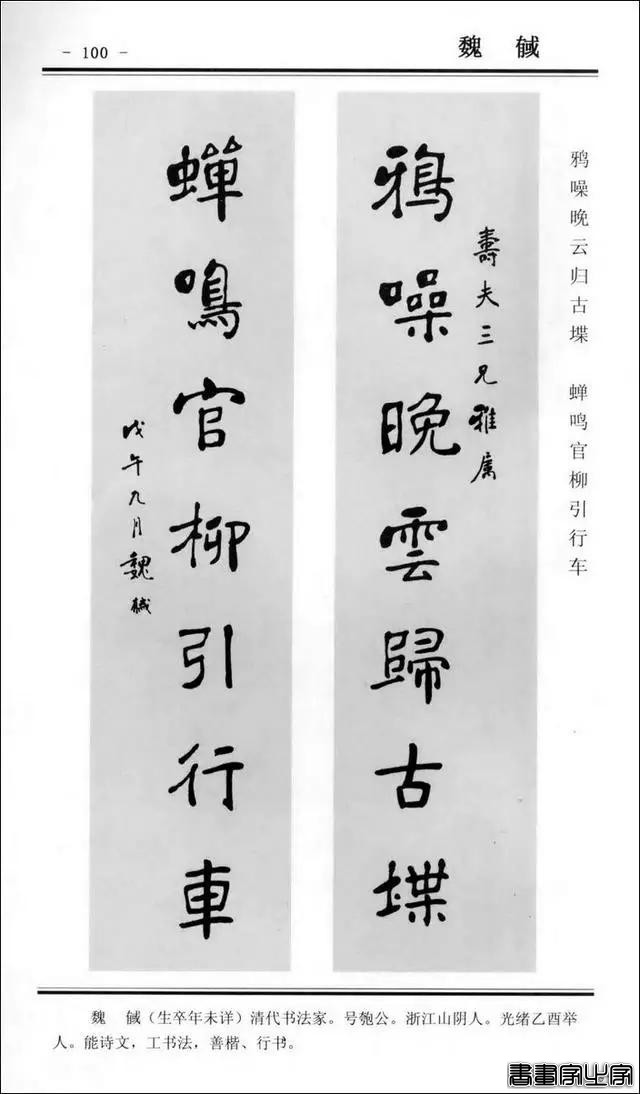 - 100 -
魏 
鸦噪晚云归古堞 蝉鸣官柳引行车
鴉噪晚雲歸古堞
壽夫三兄雅属
蟬鳴官柳引行車
戊午九月魏
魏 (生卒年未详)清代书法家。号匏公。浙江山阴人。光绪乙酉举
人。能诗文，工书法，善楷、行书。
書畫家必字